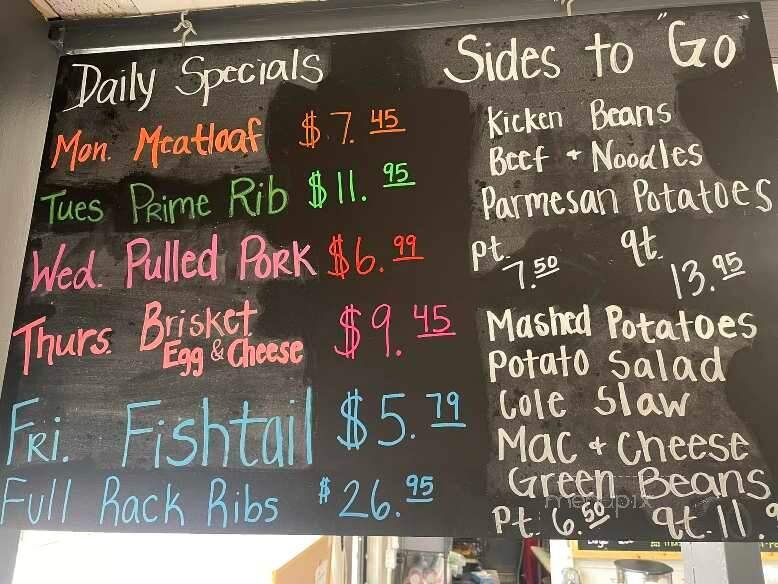 Daily Specials
Mon. Meatloaf $7.45
Tues Prime Rib $11.95
Wed. Pulled Pork $6.99
Thurs. Brisket
Egg & Cheese $9.45
Fri. Fishtail $5.79
Full Rack Ribs $26.95
Sides to "Go"
Kicken Beans
Beef + Noodles
Parmesan Potatoes
pt. 7.50 qt. 13.95
Mashed Potatoes
Potato Salad
Cole Slaw
Mac + Cheese
Green Beans
Pt. 6.50 qt. 11.9
menupix